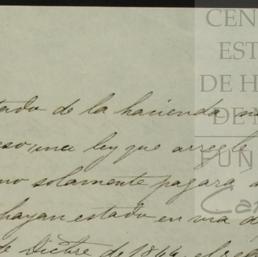 CEN
EST
DE H
DE
FUN
Ca
tado de la hacienda
eso, una ley que arregle
no solamente pagará
hayan estado en via de
de Dictre. de 1844,